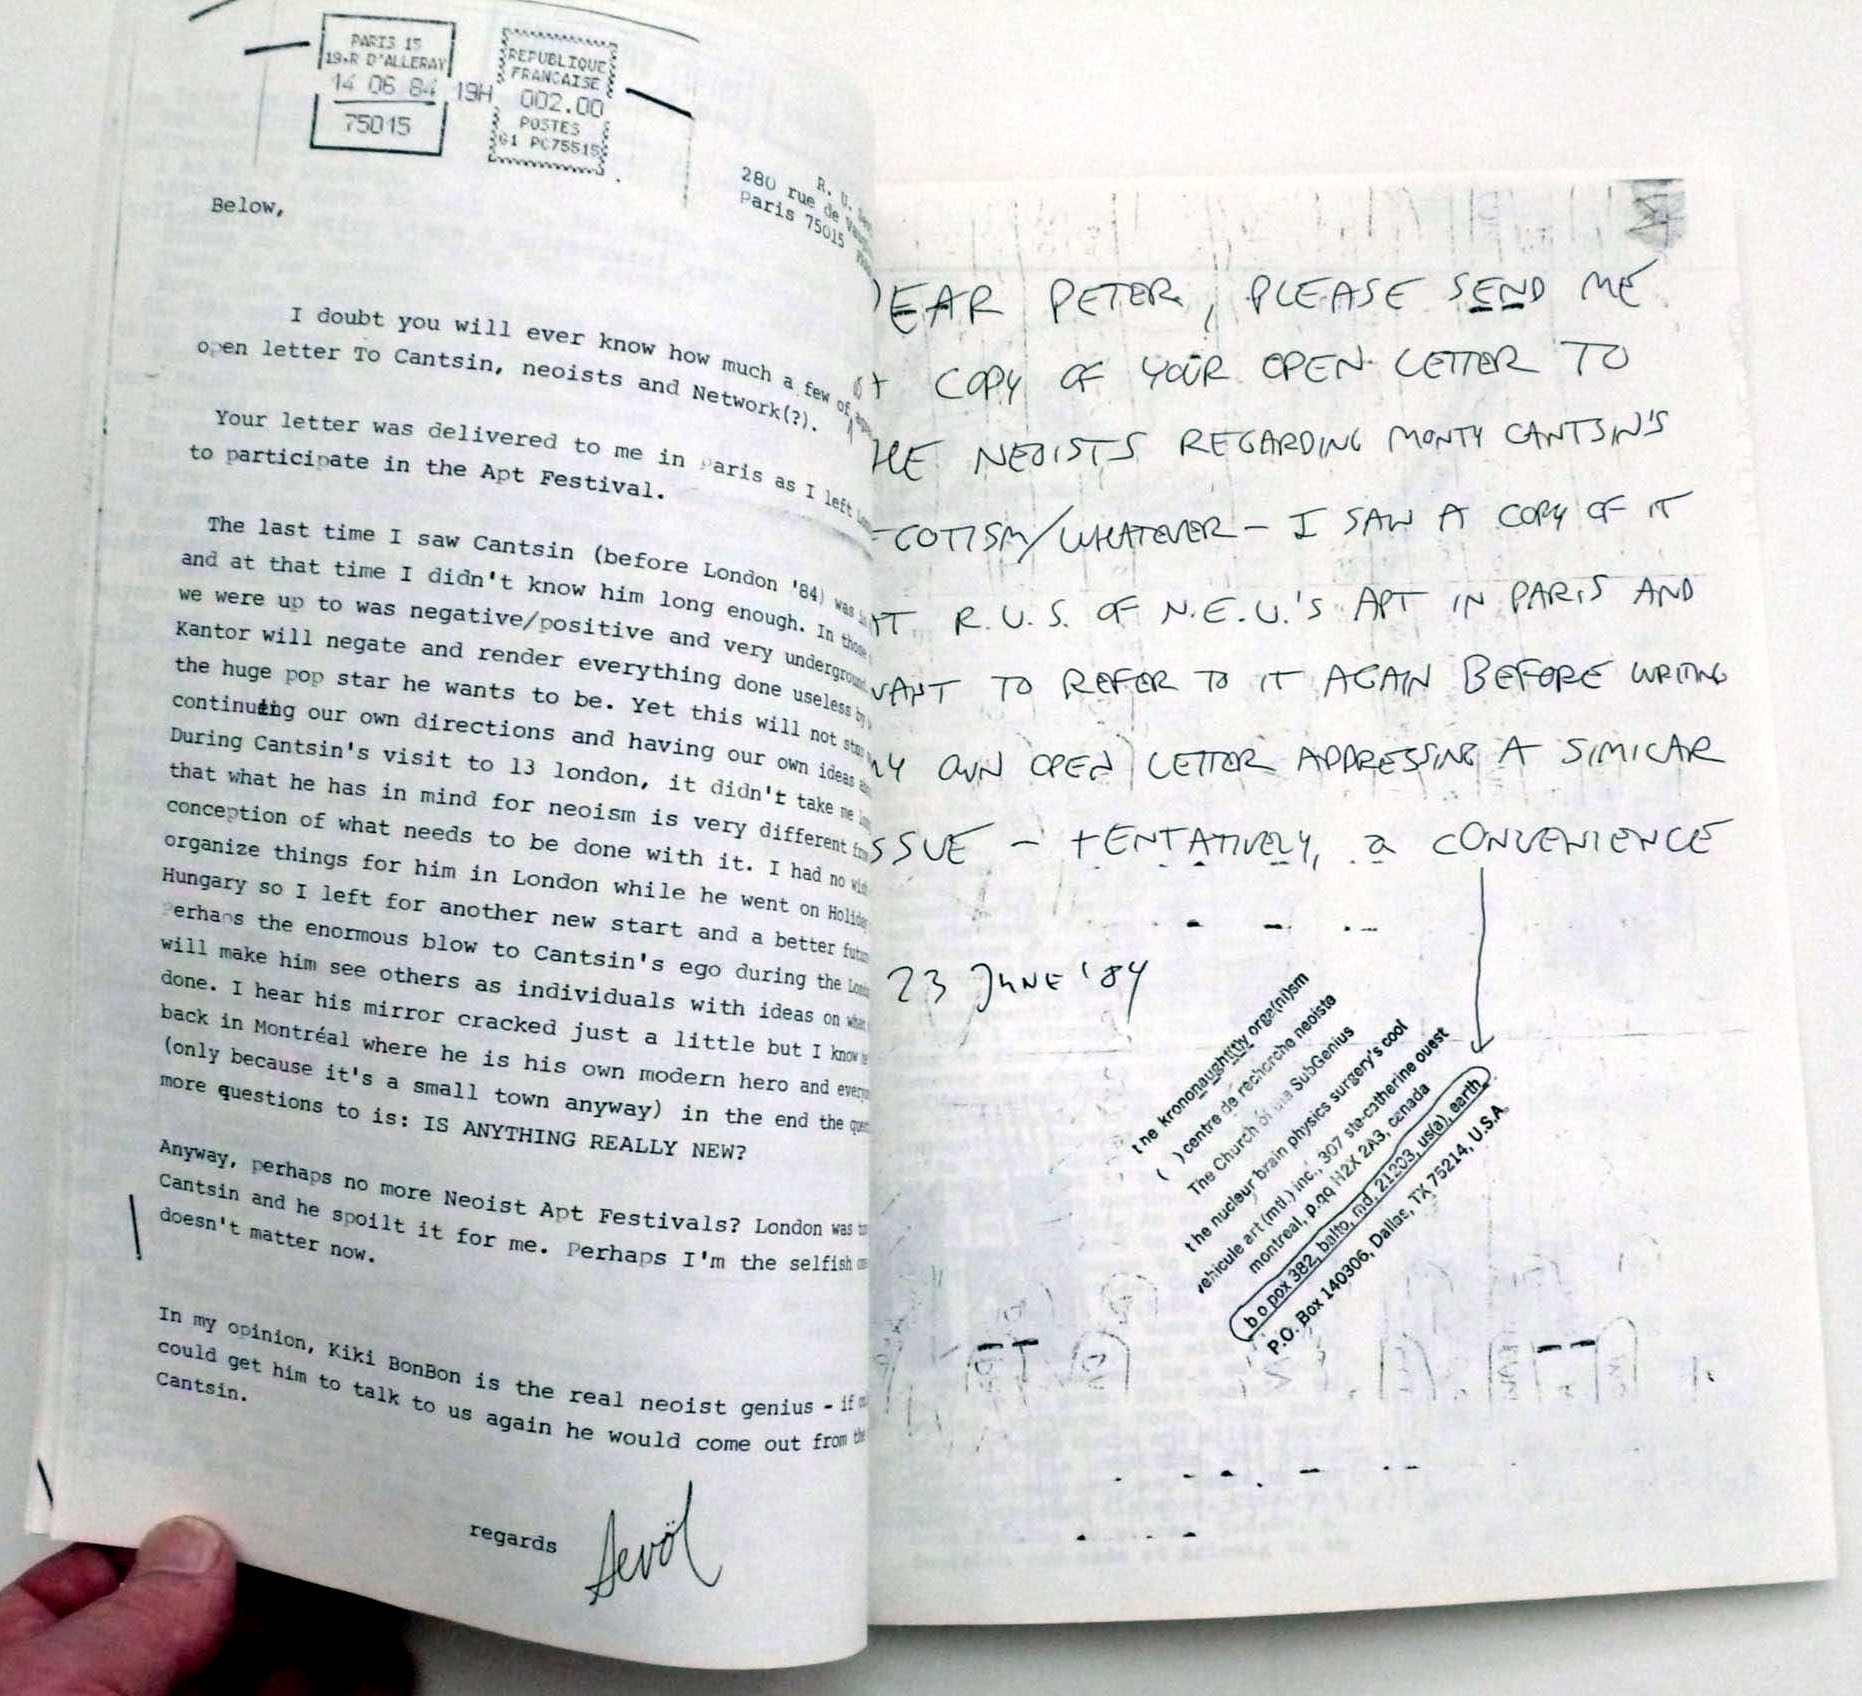 PARIS 15
19,R D'ALLERAY
14 06 84 19H
75015
REPUBLIQUE
FRANCAISE
002.00
POSTES
G1 PC75515
R. U.
280 rue de
Paris 75015
Below,
I doubt you will ever know how much a few of
open letter To Cantsin, neoists and Network(?).
Your letter was delivered to me in Paris as I left
to participate in the Apt Festival.
The last time I saw Cantsin (before London '84) was
and at that time I didn't know him long enough. In those
we were up to was negative/positive and very underground
Kantor will negate and render everything done useless by
the huge pop star he wants to be. Yet this will not stop
continuing our own directions and having our own ideas
During Cantsin's visit to 13 london, it didn't take me
that what he has in mind for neoism is very different
conception of what needs to be done with it. I had no
organize things for him in London while he went on
Hungary so I left for another new start and a better
Perhaps the enormous blow to Cantsin's ego during the
will make him see others as individuals with ideas on
done. I hear his mirror cracked just a little but I know
back in Montréal where he is his own modern hero and
(only because it's a small town anyway) in the end the
more questions to is: IS ANYTHING REALLY NEW?
Anyway, perhaps no more Neoist Apt Festivals? London was
Cantsin and he spoilt it for me. Perhaps I'm the selfish
doesn't matter now.
In my opinion, Kiki BonBon is the real neoist genius - if
could get him to talk to us again he would come out from
Cantsin.
regards
EAR PETER, PLEASE SEND ME
COPY OF YOUR OPEN LETTER TO
HE NEOISTS REGARDING MONTY CANTSIN'S
GOTISM/WHATEVER - I SAW A COPY OF IT
AT R.U.S. OF N.E.U.'S APT IN PARIS AND
WANT TO REFER TO IT AGAIN BEFORE WRITING
MY OWN OPEN LETTER ADDRESSING A SIMILAR
SSUE - tENTATIVELY, a cONVENIENCE
23 JUNE '84
the krononaught(ty) orga(ni)sm
( ) centre de recherche neoiste
The Church of the SubGenius
the nuclear brain physics surgery's cool
vehicule art (mtl.) inc., 307 ste-catherine ouest
montreal, p.qq H2X 2A3, canada
b o pox 382, balto, md, 21203, us(a), earth
P.O. Box 140306, Dallas, TX 75214, U.S.A.